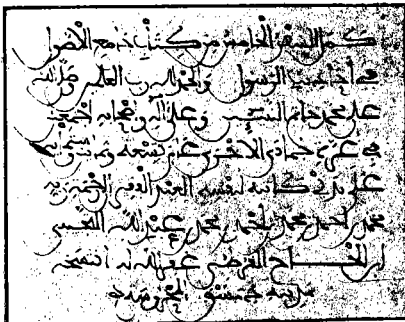 كمل السفر الخامس من كتاب جامع الأصول
في أحاديث الرسول والحمد لله رب العلمين وصلى الله
على محمد خاتم النبيين وعلى آله وأصحابه أجمعين
في غرة جمادى الأخرى عام تسعة
على يدي كاتبه لنفسه العبد الفقير إلى رحمة ربه
محمد بن أحمد بن محمد بن أحمد بن محمد بن عبد الله القيسي
ابن الحاج القرطبي عفى الله له
بمدينة دمشق المحروسة